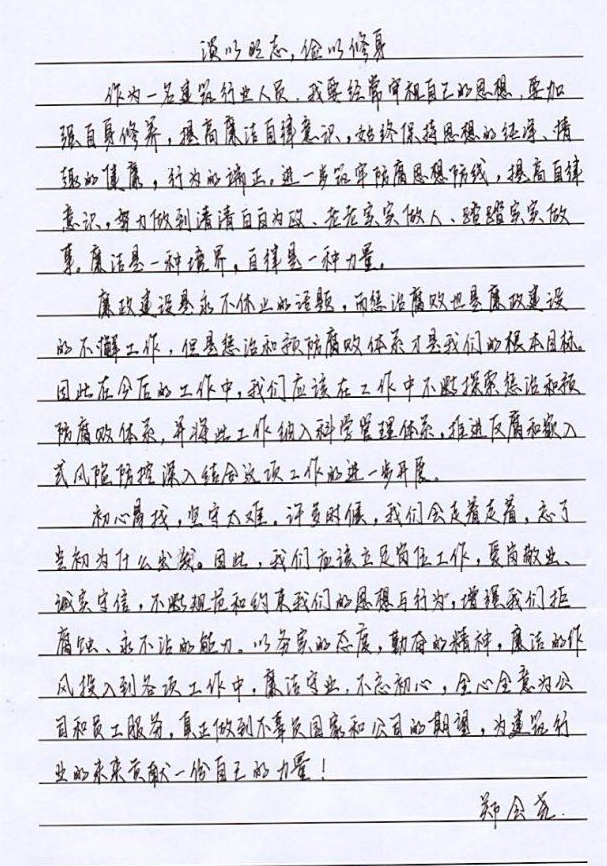 淡以明志,俭以修身
作为一名建筑行业人员,我要经常审视自己的思想,要加
强自身修养,提高廉洁自律意识,始终保持思想的纯净、情
趣的健康,行为的端正,进一步筑牢防腐思想防线,提高自律
意识,努力做到清清白白为政、老老实实做人、踏踏实实做
事。廉洁是一种境界,自律是一种力量。
廉政建设是永不休业的话题,而惩治腐败也是廉政建设
的不懈工作,但是惩治和预防腐败体系才是我们的根本目标。
因此在今后的工作中,我们应该在工作中不断探索惩治和预
防腐败体系,并将此工作纳入科学管理体系,推进反腐和嵌入
式风险防控深入结合这项工作的进一步开展。
初心易找,坚守太难。许多时候,我们会走着走着,忘了
当初为什么出发。因此,我们应该立足岗位工作,爱岗敬业、
诚实守信,不断规范和约束我们的思想与行为,增强我们拒
腐蚀、永不沾的能力。以务实的态度,勤奋的精神,廉洁的作
风投入到各项工作中,廉洁守业,不忘初心,全心全意为公
司和员工服务,真正做到不辜负国家和公司的期望,为建筑行
业的未来贡献一份自己的力量!
郑会